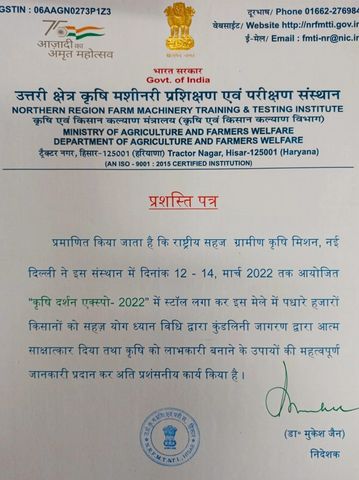 GSTIN : 06AAGN0273P1Z3
दूरभाष/ Phone 01662-276984
वेबसाईट/ Website http://nrfmtti.gov.
ई-मेल/ Email : fmti-nr@nic.in
आज़ादी का
अमृत महोत्सव
भारत सरकार
Govt. of India
उत्तरी क्षेत्र कृषि मशीनरी प्रशिक्षण एवं परीक्षण संस्थान
NORTHERN REGION FARM MACHINERY TRAINING & TESTING INSTITUTE
कृषि एवं किसान कल्याण मंत्रालय (कृषि एवं किसान कल्याण विभाग)
MINISTRY OF AGRICULTURE AND FARMERS WELFARE
DEPARTMENT OF AGRICULTURE AND FARMERS WELFARE
ट्रैक्टर नगर, हिसार-125001 (हरियाणा) Tractor Nagar, Hisar-125001 (Haryana)
(AN ISO - 9001 : 2015 CERTIFIED INSTITUTION)
प्रशस्ति पत्र
प्रमाणित किया जाता है कि राष्ट्रीय सहज ग्रामीण कृषि मिशन, नई
दिल्ली ने इस संस्थान में दिनांक 12 - 14, मार्च 2022 तक आयोजित
"कृषि दर्शन एक्स्पो- 2022" में स्टॉल लगा कर इस मेले में पधारे हजारों
किसानों को सहज़ योग ध्यान विधि द्वारा कुंडलिनी जागरण द्वारा आत्म
साक्षात्कार दिया तथा कृषि को लाभकारी बनाने के उपायों की महत्वपूर्ण
जानकारी प्रदान कर अति प्रशंसनीय कार्य किया है ।
(डा॰ मुकेश जैन)
निदेशक